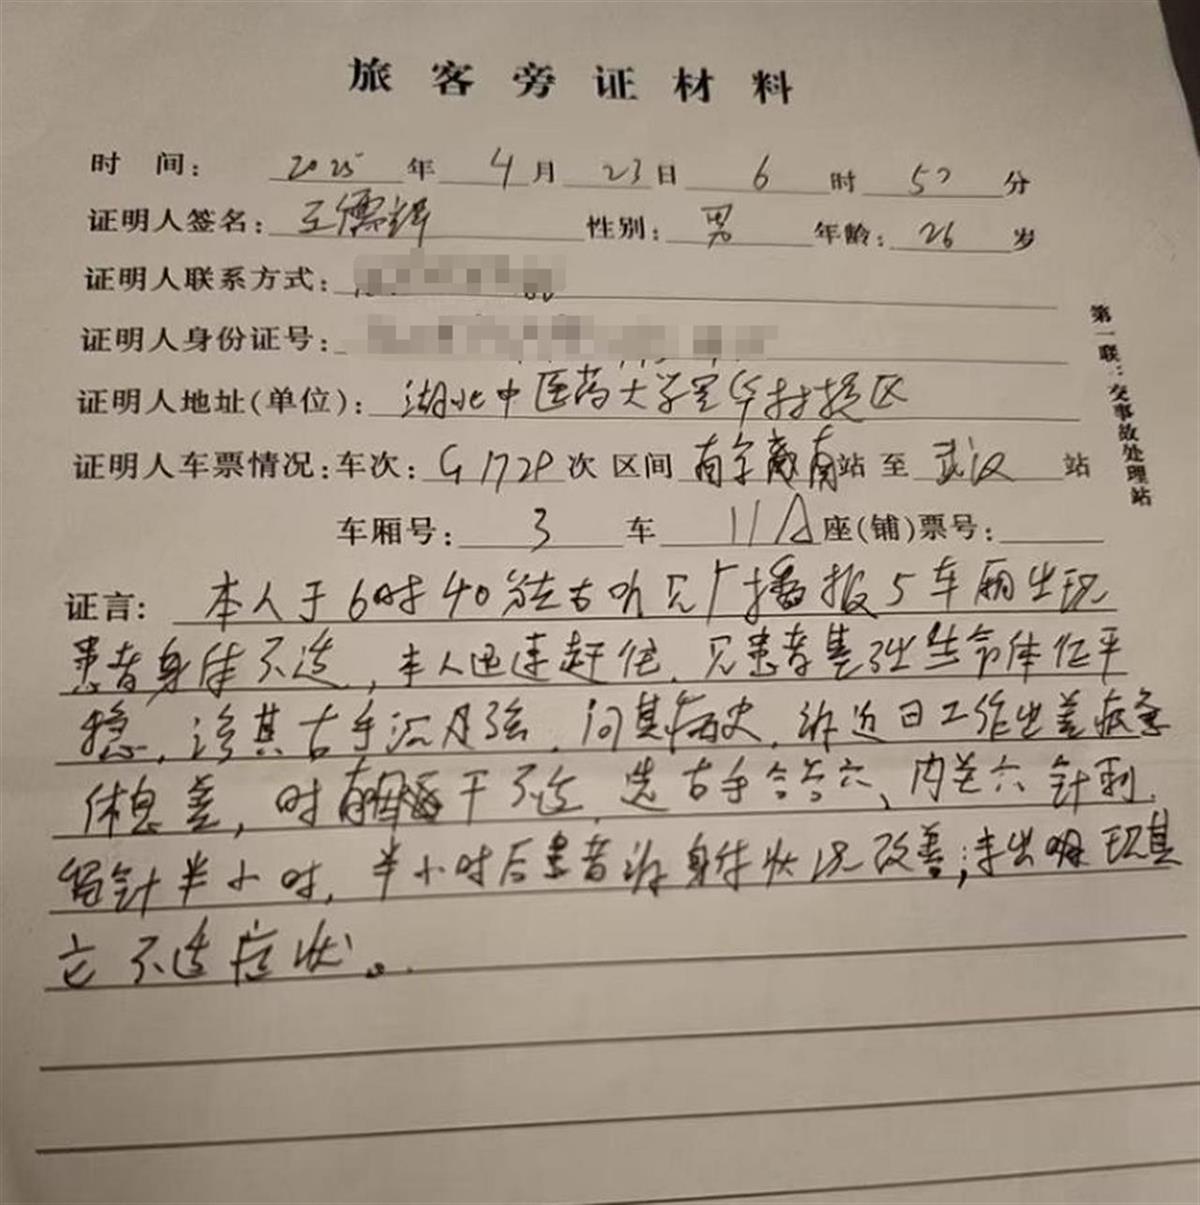 旅客旁证材料
时 间: 2025年 4月 23日 6时 52分
证明人签名: 王儒辉 性别: 男 年龄: 26岁
证明人联系方式:
证明人身份证号:
证明人地址(单位): 湖北中医药大学黄家湖校区
证明人车票情况: 车次: G1729次 区间 南京南站 至 武汉 站
车厢号: 3 车 11A座(铺)票号:
第一联:交事故处理站
证言: 本人于6时40分左右听见广播报5车厢出现
患者身体不适,本人迅速赶往.见患者生命体征平
稳.诊其右手沉月弦.问其病史.诉近日工作出差疲惫
休息差,时有胸不适.选右手合谷穴、内关穴针刺.
留针半小时.半小时后患者诉身体状况改善;未出现其
它不适症状。